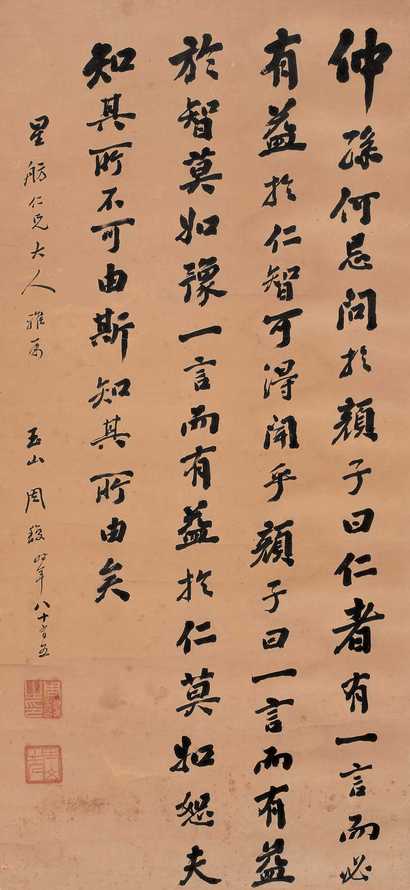 仲孫何忌問於顏子曰仁者有一言而必
有益於仁智可得聞乎顏子曰一言而有益
於智莫如豫一言而有益於仁莫如恕夫
知其所不可由斯知其所由矣
星舫仁兄大人雅屬
玉山周馥時年八十有五